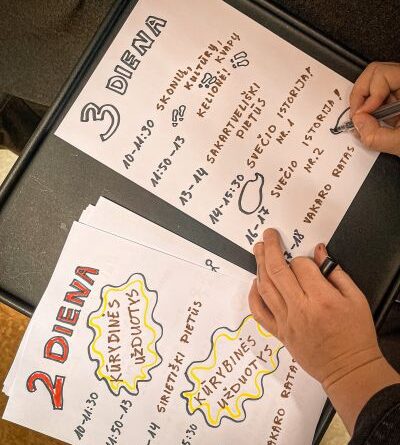 3 DIENA
10-11:30 SKONIŲ,
KULTŪRŲ,
KELIONĖ! KVAPŲ
11:50-13
13-14 SAKARTVELIŠKI
PIETŪS
14-15:30 SVEČIO ISTORIJA!
NR. 1
16-17 SVEČIO ISTORIJA!
NR.2
7-18 VAKARO RATAS
2 DIENA
10-11:30 KŪRYBINĖS
UŽDUOTYS
11:50-13
-14 SIRIETIŠKI PIETŪS
5:30 KŪRYBINĖS
UŽDUOTYS
AKARO RATA